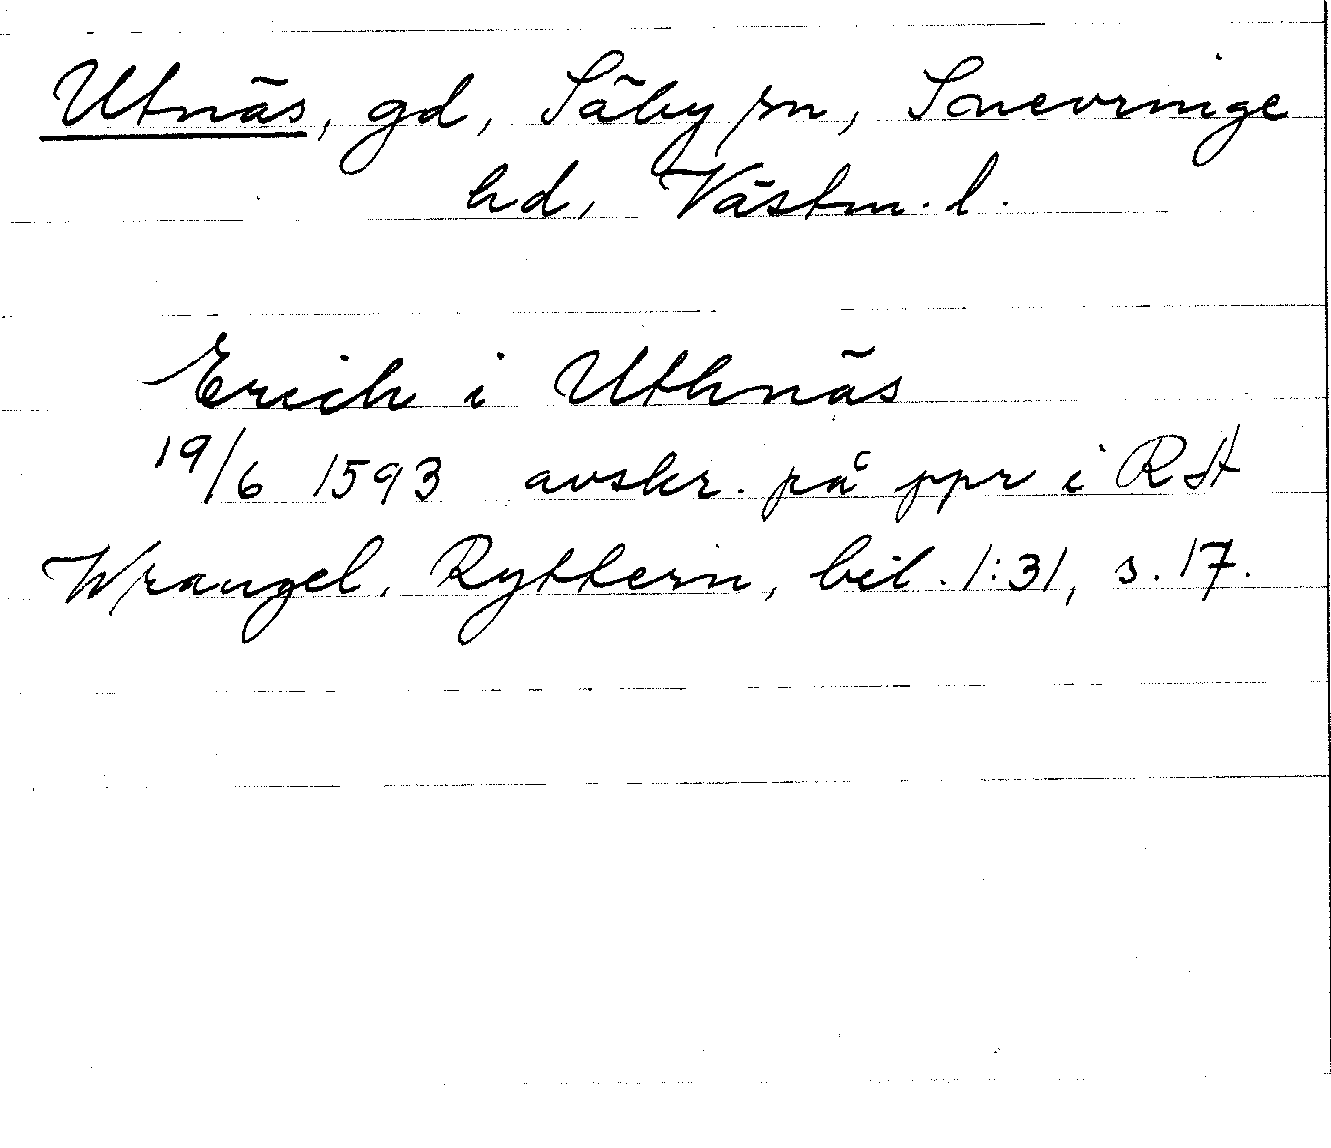 Utnäs, gd, Säby sn, Snevringe
hd, Västm. l.
Erich i Uthnäs
19/6 1593 avskr. på ppr i RA
Wrangel, Ryttern, bil. 1:31, s. 17.